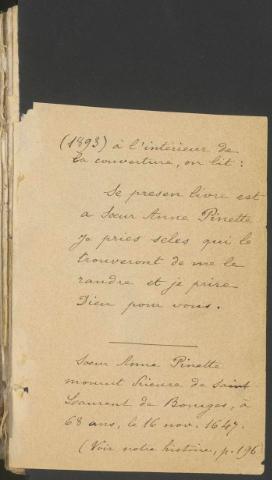 (1893) à l'intérieur de
la couverture, on lit :
Se presen livre est
a Sœur Anne Pinette
Je pries seles qui le
trouveront de me le
randre et je prire
Dieu pour vous.
Sœur Anne Pinette
mourut Prieure de Saint
Laurent de Bourges, à
68 ans, le 16 nov. 1647.
(Voir notre histoire, p. 196